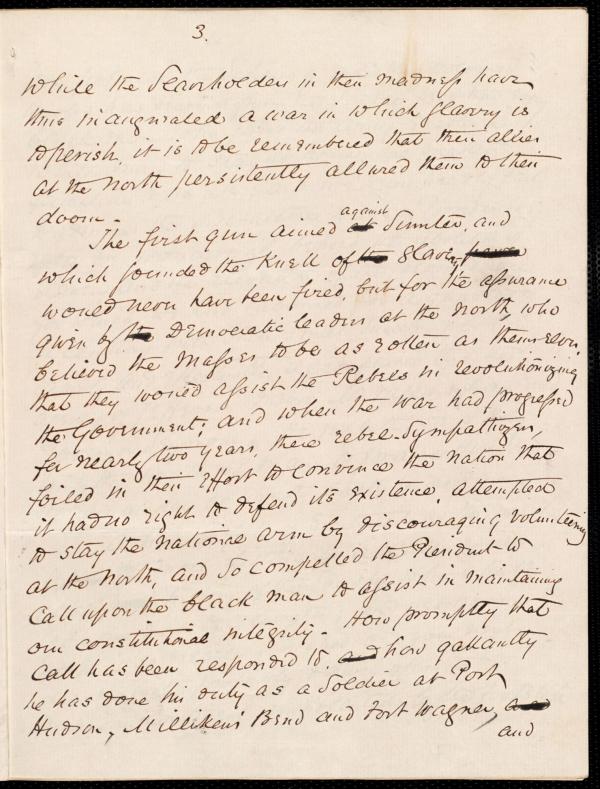 3.
While the Slaveholders in their madness have
thus inaugurated a war in which Slavery is
to perish, it is to be remembered that their allies
at the North persistently allured them to their
doom.
against
The first gun aimed at Sumter, and
which sounded the Knell of the Slavery power
would never have been fired, but for the assurance
given by the Democratic leaders at the North, who
believed the Masses to be as rotten as themselves,
that they would assist the Rebels in revolutionizing
the Government; and when the war had progressed
for nearly two years, these rebel-Sympathizers,
foiled in their Effort to convince the Nation that
it had no right to defend its Existence, attempted
to stay the National arm by discouraging volunteering
at the North, and so compelled the President to
Call upon the black man to assist in maintaining
our constitutional integrity. How promptly that
Call has been responded to, and how gallantly
he has done his duty as a Soldier at Port
Hudson, Milliken's Bend and Fort Wagner, and
and